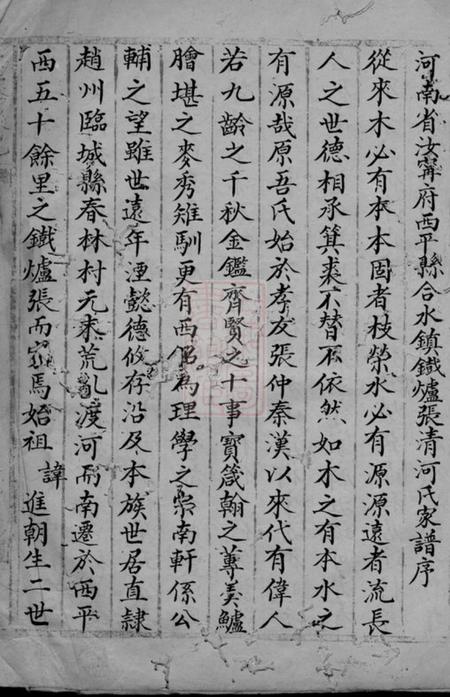 河南省汝寧府西平縣合水鎮鐵爐張清河氏家譜序
從來木必有本本固者枝榮水必有源源遠者流長
人之世德相承箕裘不替不依然如木之有本水之
有源哉原吾氏始於孝友張仲秦漢以來代有偉人
若九齡之千秋金鑑齊賢之十事寶箴翰之蓴羮鱸
膾堪之麥秀雉馴更有西為理學之宗南軒係公
輔之望雖世遠年湮懿德攸存沿及本族世居直隸
趙州臨城縣春林村元末荒亂渡河而南遷於西平
西五十餘里之鐵爐張而家焉始祖 諱進朝生二世